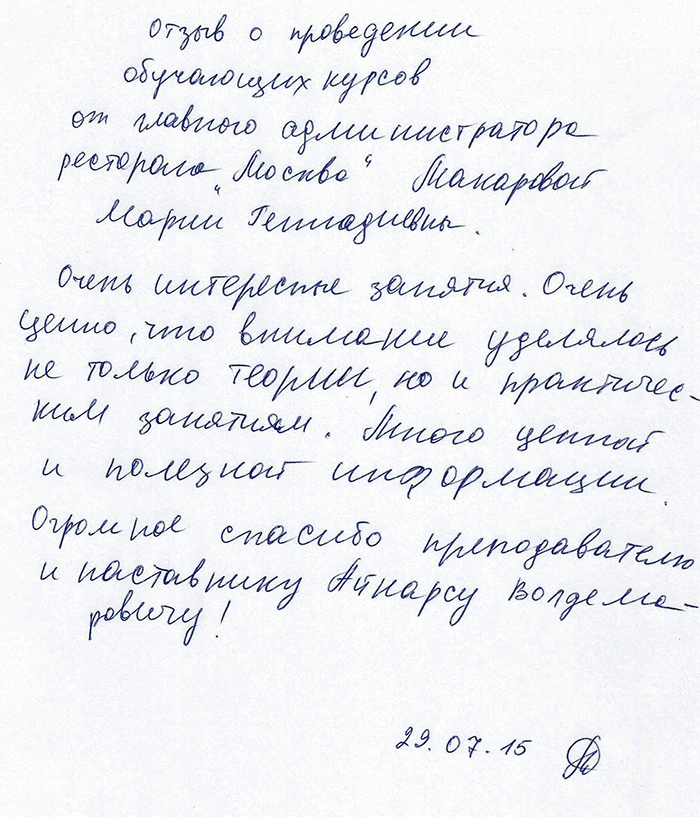 Отзыв о проведении
обучающих курсов
от главного администратора
ресторана „Москва“ Макаровой
Марии Геннадиевны.
Очень интересные занятия. Очень
ценно, что внимание уделялось
не только теории, но и практичес-
ким занятиям. Много ценной
и полезной информации.
Огромное спасибо преподавателю
и наставнику Айнарсу Волдема-
ровичу!
29.07.15